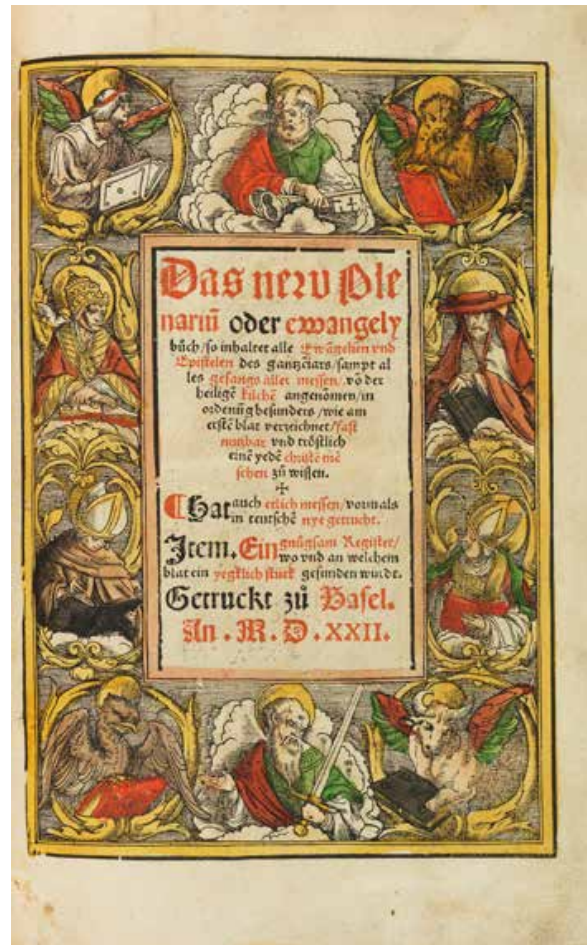 Das new Ple
nariū oder ewangely
bůch/so inhaltet alle Ewāgelien vnd
Epistelen des gantzē iars/sampt al
les gesangs aller messen/vō der
heiligē kilchē angenōmen/in
ordenūg besunders/wie am
erstē blat verzeichnet/fast
nutzbar vnd tröstlich
einē yedē christē mē
schen zů wissen.
Hat auch etlich messen/vormals
in teutschē nye getruckt.
Item. Ein gnůgsam Register/
wo vnd an welchem
blat ein yegklich stuck gefunden wirdt.
Getruckt zů Basel.
An. M. D. XXII.